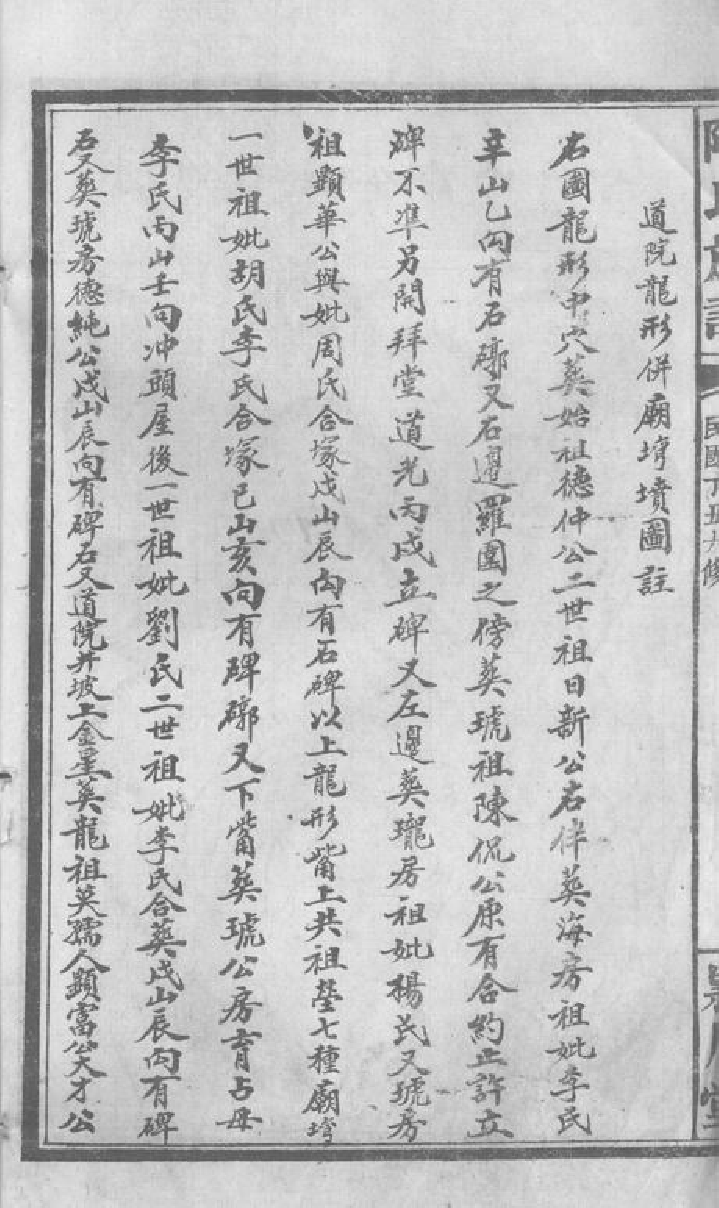 陳氏族譜
民國丁丑九修
道院龍形併廟塆墳圖註
右圖龍形中穴葬始祖德仲公二世祖日新公右伴葬海房祖妣李氏
辛山乙向有石廓又石邊羅圍之傍葬琥祖陳侃公原有合約止許立
碑不準另開拜堂道光丙戌立碑又左邊葬瓏房祖妣楊氏又琥房
祖顯華公與妣周氏合塚戌山辰向有石碑以上龍形嘴上共祖塋七種廟塆
一世祖妣胡氏李氏合塚巳山亥向有碑廓又下嘴葬琥公房育占母
李氏丙山壬向冲頭屋後一世祖妣劉氏二世祖妣李氏合葬戌山辰向有碑
石又葬琥房德純公戌山辰向有碑石又道院井坡上金星葬龍祖英孺人顯富公大才公